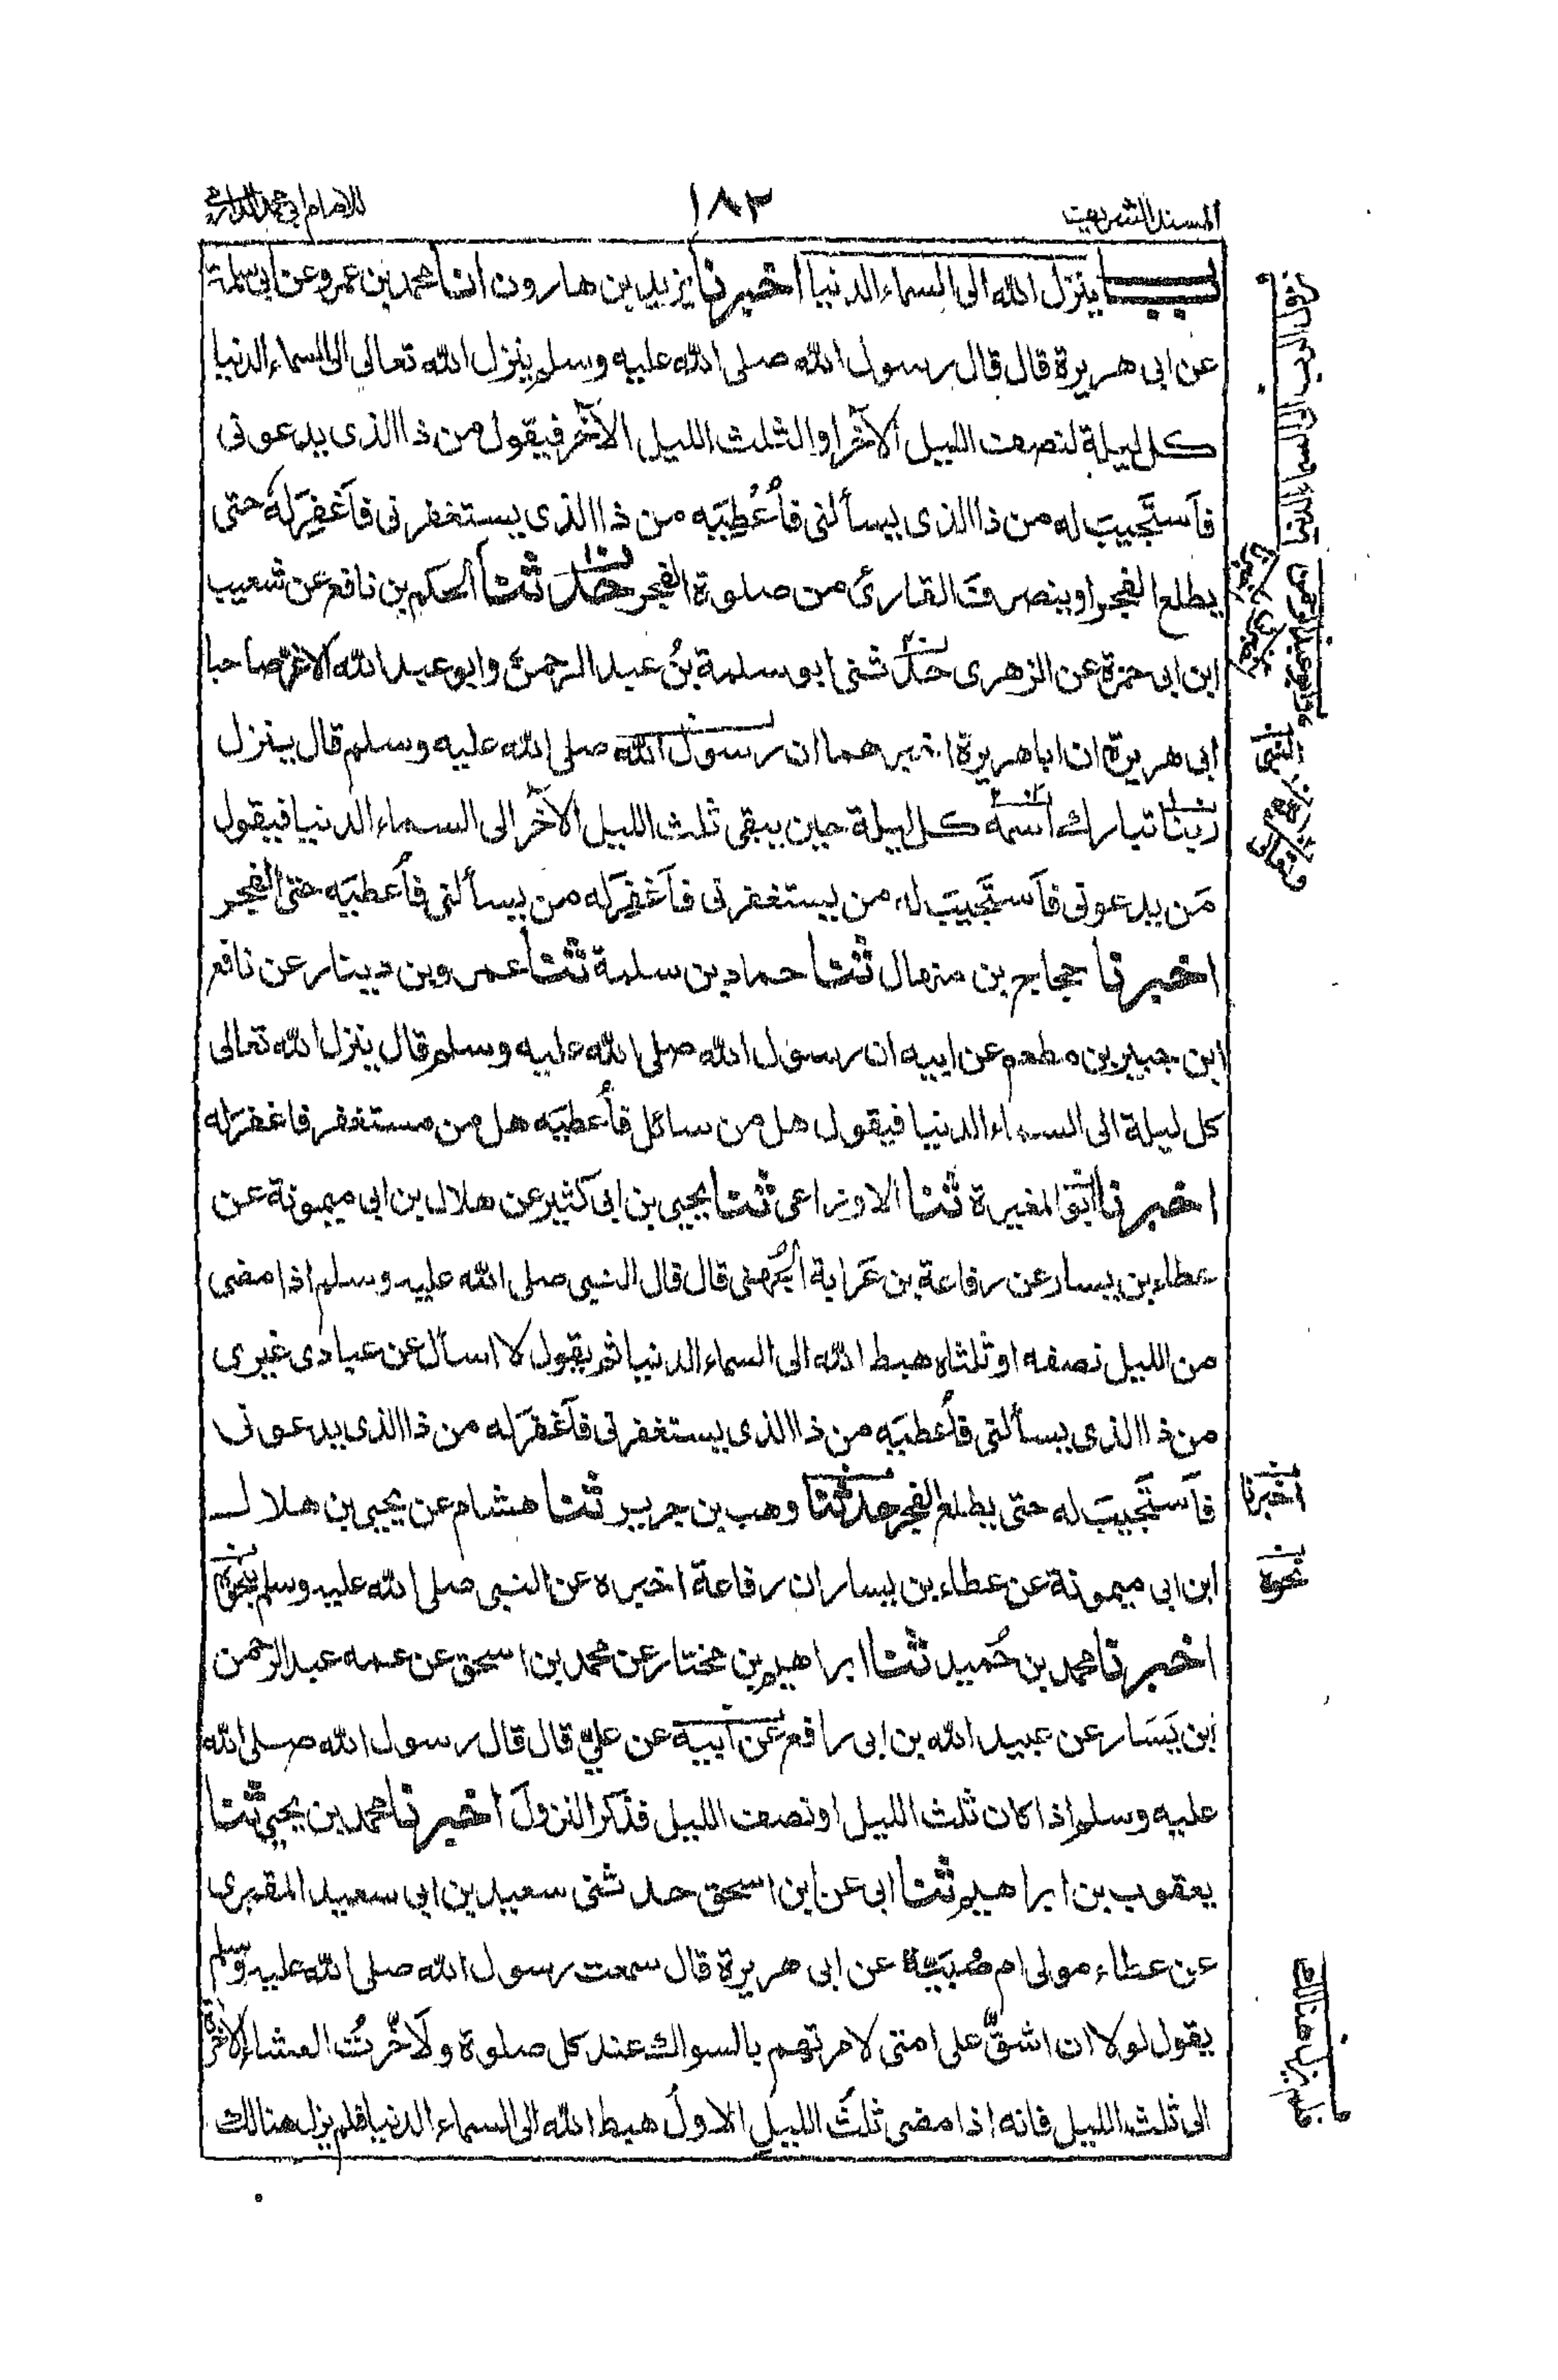 المسند الشريف
١٨٢
للامام ابي محمد الدارمي
باب ينزل الله الى السماء الدنيا اخبرنا يزيد بن هارون انا محمد بن عمرو عن ابي سلمة
عن ابي هريرة قال قال رسول الله صلى الله عليه وسلم ينزل الله تعالى الى السماء الدنيا
كل ليلة لنصف الليل الآخر او الثلث الليل الآخر فيقول من ذا الذى يدعونى
فأستَجيبَ له من ذا الذى يسألنى فأُعْطِيَه من ذا الذى يستغفرنى فأَغفِرَ له حتى
يطلع الفجر او ينصرف القارئ من صلوة الفجر حدثنا الحكم بن نافع عن شعيب
ابن ابى حمزة عن الزهرى حدثنى ابو سلمة بنُ عبد الرحمن وابو عبد الله الاغر صاحبا
ابى هريرة ان ابا هريرة اخبرهما ان رسول الله صلى الله عليه وسلم قال ينزل
ربنا تبارك اسمه كل ليلة حين يبقى ثلث الليل الآخر الى السماء الدنيا فيقول
مَن يدعونى فأَستَجيبَ له من يستغفرنى فأَغفِرَ له من يسألنى فأُعطيَه حتى الفجر
اخبرنا حجاج بن منهال ثنا حماد بن سلمة ثنا عمرو بن دينار عن نافع
ابن جبير بن مطعم عن ابيه ان رسول الله صلى الله عليه وسلم قال ينزل الله تعالى
كل ليلة الى السماء الدنيا فيقول هل من سائل فأُعطيَه هل من مستغفر فاغفرَ له
اخبرنا ابو المغيرة ثنا الاوزاعى ثنا يحيى بن ابى كثير عن هلال بن ابى ميمونة عن
عطاء بن يسار عن رفاعة بن عَرابة الجُهنى قال قال النبى صلى الله عليه وسلم اذا مضى
من الليل نصفه او ثلثاه هبط الله الى السماء الدنيا ثم يقول لا اسأل عن عبادى غيرى
من ذا الذى يسألنى فأُعطيَه من ذا الذى يستغفرنى فأَغفرَ له من ذا الذى يدعونى
فأَستَجيبَ له حتى يطلع الفجر حدثنا وهب بن جرير ثنا هشام عن يحيى بن هلال
ابن ابى ميمونة عن عطاء بن يسار ان رفاعة اخبره عن النبى صلى الله عليه وسلم بنحوه
اخبرنا محمد بن حُميد ثنا ابراهيم بن مختار عن محمد بن اسحق عن عمه عبد الرحمن
ابن يَسَار عن عبيد الله بن ابى رافع عن ابيه عن على قال قال رسول الله صلى الله
عليه وسلم اذا كان ثلث الليل او نصف الليل فذكر النزولَ اخبرنا محمد بن يحيى ثنا
يعقوب بن ابراهيم ثنا ابى عن ابن اسحق حدثنى سعيد بن ابى سعيد المقبرى
عن عطاء مولى ام صُبَيّة عن ابى هريرة قال سمعت رسول الله صلى الله عليه وسلم
يقول لولا ان اشقَّ على امتى لامرتهم بالسواك عند كل صلوة ولَأخّرتُ العشاء الآخرة
الى ثلث الليل فانه اذا مضى ثلثُ الليلِ الاولُ هبط الله الى السماء الدنيا فلم يزل هنالك
النبى
وتعالى
اخبرنا
نحوه
فلم يزل هنالك